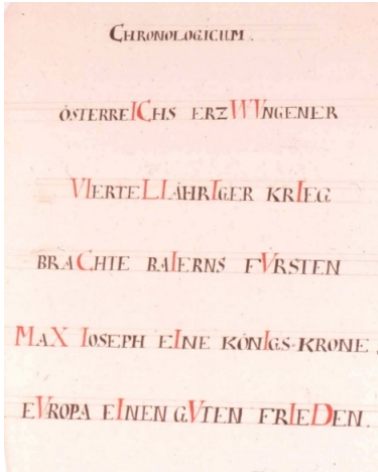 CHRONOLOGICUM.
ÖSTERREICHS ERZWVNGENER
VIERTELIÄHRIGER KRIEG
BRACHTE BAIERNS FVRSTEN
MAX IOSEPH EINE KÖNIGS-KRONE,
EVROPA EINEN GVTEN FRIEDEN.